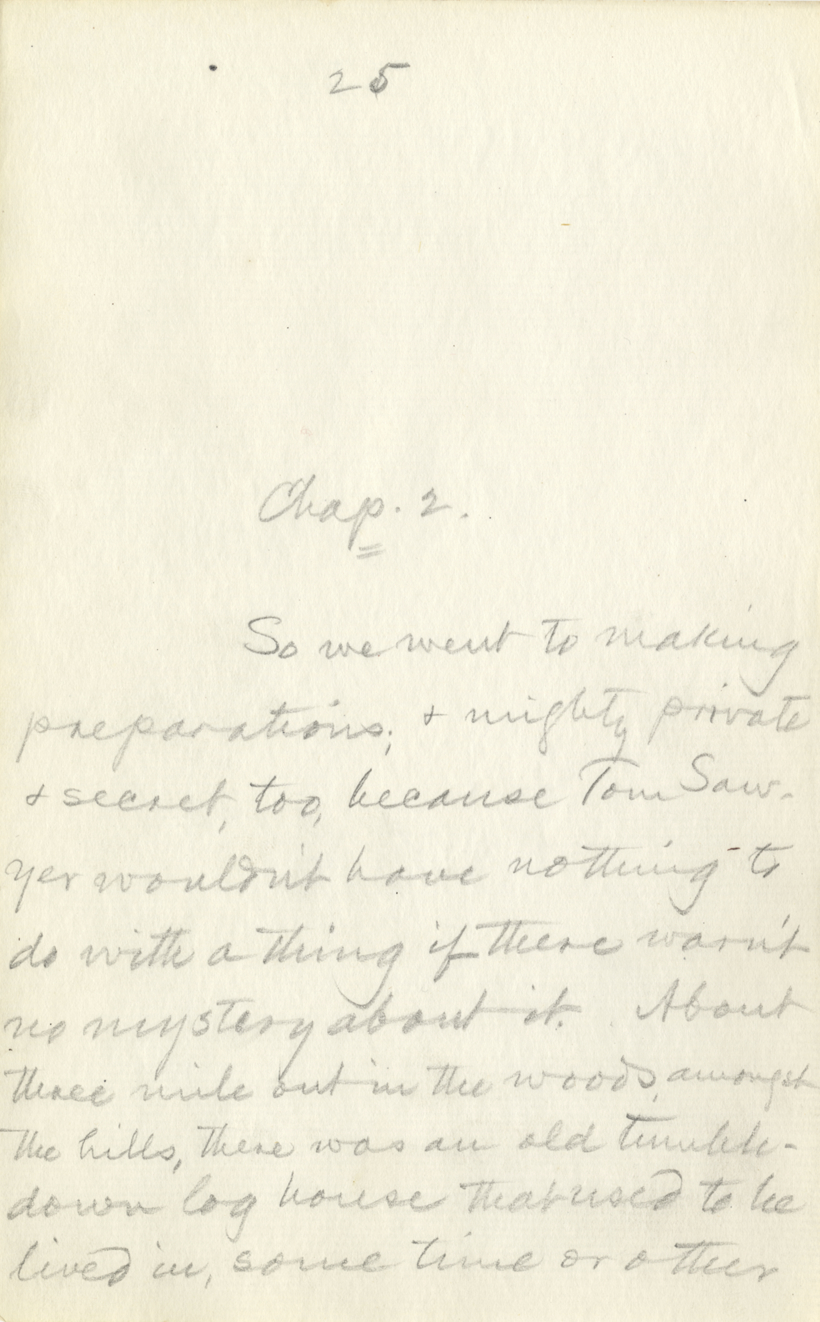 25
Chap. 2.
So we went to making
preparations; & mighty private
& secret, too, because Tom Saw-
yer wouldn't have nothing to
do with a thing if there warn't
no mystery about it. About
three mile out in the woods, amongst
the hills, there was an old tumble-
down log house that used to be
lived in, some time or other